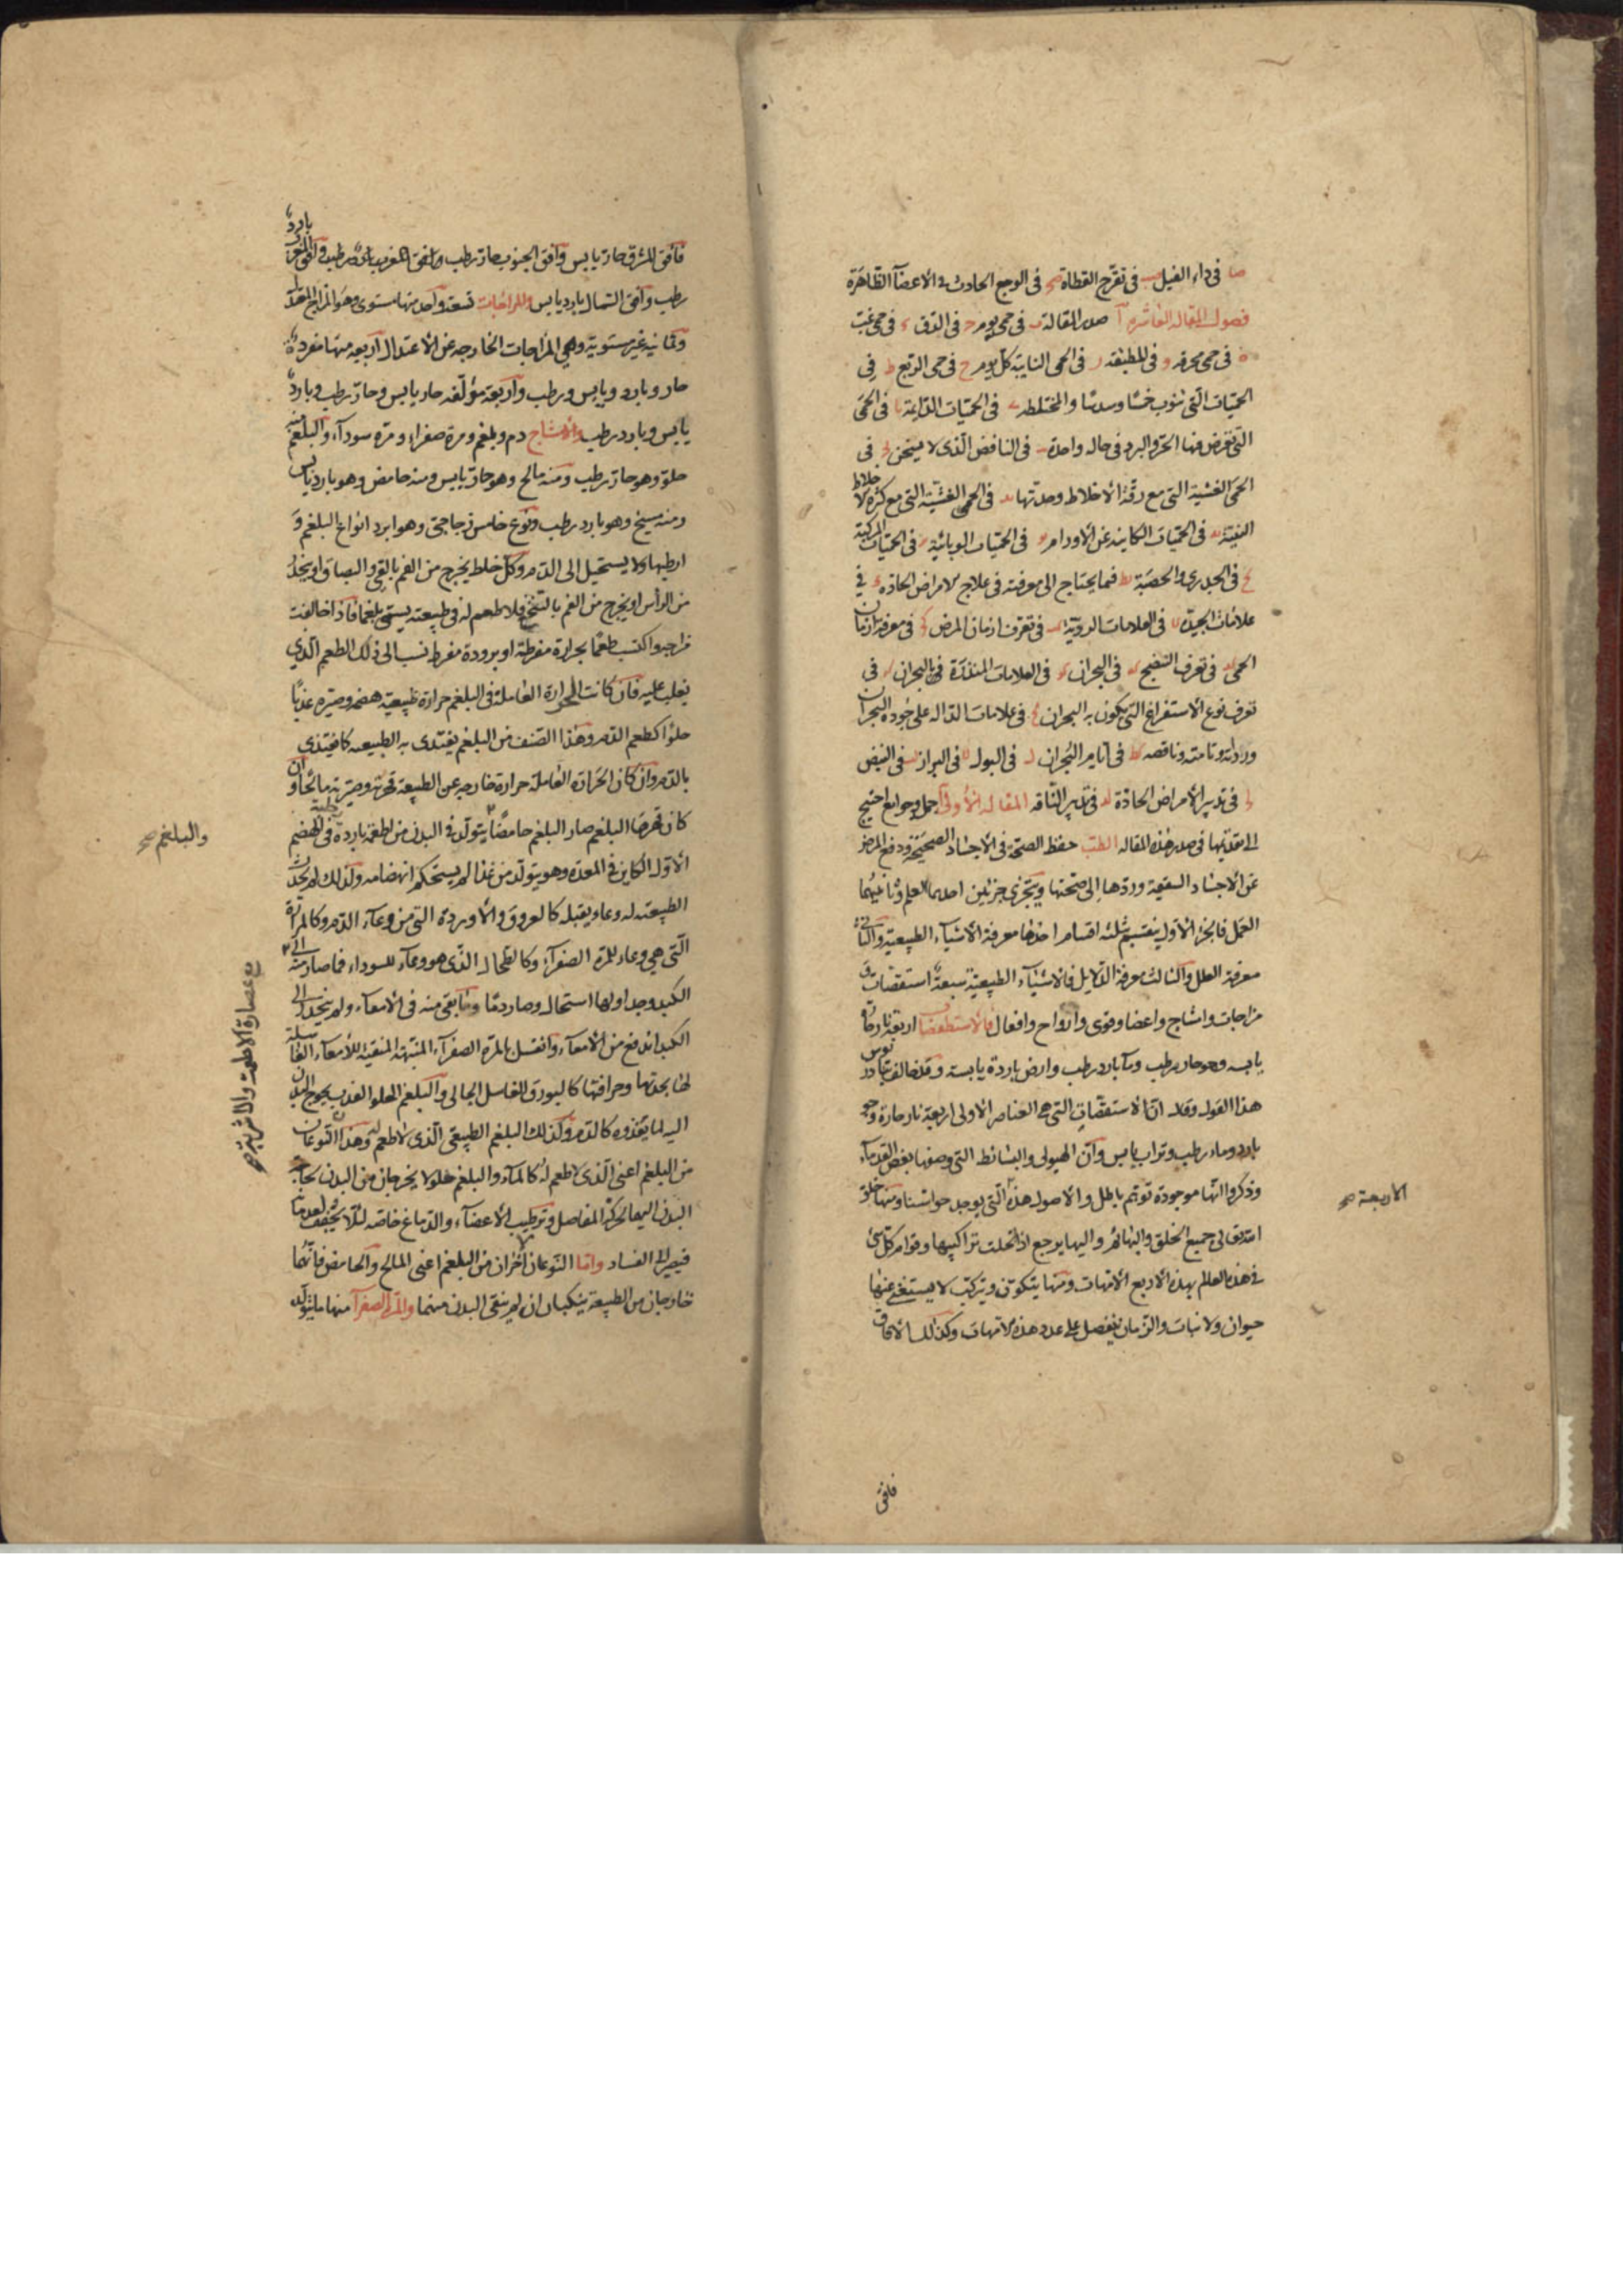 صا في داء الفيل صب في تقرح القطاة صج في الوجع الحادث في الاعضآ الظاهرة
فصول المقاله العاشره آ صدر المقالة ب في حمى يوم ج في الدق د في حمى غب
ه في حمى محرقه و في المطبقه ز في الحمى النايبة كل يوم ح في حمى الربع ط في
الحميات التي تنوب خمسا وسدسا والمختلطه ي في الحميات الدايمة يا في الحمى
التي تعرض فيها الحر والبرد في حاله واحدة يب في النافض الذي لا يسخن يج في
الحمى الغشية التي مع رقة الاخلاط وحدتها يد في الحمى الغشية التي مع كثرة الاخلاط
النية يه في الحميات الكاينة عن الاورام يو في الحميات الوبائية يز في الحميات المركبة
يح في الجدري والحصبة يط فيما يحتاج الى معرفته في علاج الامراض الحاده ك في
علامات الجيدة كا في العلامات الردية كب في تعرف ازمان المرض كج في معرفة ازمان
الحمى كد في تعرف النضج كه في البحران كو في العلامات المنذرة في البحران كز في
تعرف نوع الاستفراغ التي يكون به البحران كح في علامات الداله على جوده البحران
وردائه وتامه وناقصه كط في ايام البحران ل في البول لا في البراز لب في النبض
لج في تدبير الامراض الحادة لد في تدبير الناقه المقاله الاولى جمل وجوامع احتيج
الى تقديمها في صدر هذه المقاله الطب حفظ الصحة في الاجساد الصحيحة ودفع المرض
عن الاجساد السقيمة وردها الى صحتها ويتجزى جزئين احدهما العلم وثانيهما
العمل فالجزء الاول ينقسم ثلثه اقسام احدها معرفة الاشيآء الطبيعية والثاني
معرفة العلل والثالث معرفة الدلايل فالاشيآء الطبيعية سبعة استقصات و
مزاجات وامشاج واعضا وقوى وارواح وافعال فالاستقصات اربعة نار حارة
يابسه وهو حار رطب ومآ بارد رطب وارض باردة يابسة وقد خالف ثاذروس
هذا القول وقال ان الاستقصات التي هي العناصر الاولى اربعة نار حارة وجو
بارد وماء رطب وتراب يابس وان الهيولى والبسائط التي وصفها بعض القدمآء
وذكروا انها موجودة توهم باطل والاصول هذه التي يوجد حواسنا ومنها خلق
الاربعة صح
الله تعالى جميع الخلق والبهائم واليها يرجع اذا انحلت تراكيبها وقوام كل شئ
في هذه العالم بهذه الاربع الامهات ومنها يتكون ويتركب لا يستغني عنها
حيوان ولا نبات والزمان ينفصل على عدد هذه الامهات وكذلك الافاق
فافق
فافق المشرق حار يابس وافق الجنوب حار رطب وافق المغرب بارد رطب وافق المغرب بارد
رطب وافق الشمال بارد يابس والمزاجات تسعة واحد منها مستوي وهو المزاج المعتدل
وثمانية غير مستوية وهي المزاجات الخارجه عن الاعتدال اربعه منها مفردة
حار وبارد ويابس ورطب واربعة مؤلفه حار يابس وحار رطب وبارد
يابس وبارد رطب والامشاج دم وبلغم ومرة صفراء ومرة سودآء والبلغم منه
حلو وهو حار رطب ومنه مالح وهو حار يابس ومنه حامض وهو بارد يابس
ومنه مسيخ وهو بارد رطب ونوع خامس زجاجي وهو ابرد انواع البلغم و
ارطبها ولا يستحيل الى الدم وكل خلط يخرج من الفم بالقي والبصاق او ينحدر
من الراس او يخرج من الفم بالتنخع ولا طعم له في طبيعته يسمى بلغما فاذا خالفت
مزاجه واكتسب طعما بحرارة مفرطة او برودة مفرطه نسب الى ذلك الطعم الذي
يغلب عليه فان كانت الحرارة العاملة في البلغم حرارة طبيعية هضمه وصيره عذبا
حلوا كطعم الدم وهذا الصنف من البلغم يغتذى به الطبيعه كما يغتذي
بالدم وان كان الحرارة العاملة حرارة خارجه عن الطبيعة قهرته وصيرته مالحا وان
كان قهرها البلغم صار البلغم حامضا يتولد في البدن من اطعمة باردة رطبة في الهضم
والبلغم صح
الاول الكاين في المعدة وهو يتولد من غذا لم يستحكم انهضامه ولذلك لم يتخذ
الطبيعة له وعاء يقبله كالعروق والاوردة التي من وعآء الدم وكالمرارة
التي هي وعاء للمرة الصفرآء وكالطحال الذي هو وعآء للسوداء فما صار منه الى
الكبد وجداولها استحال وصار دما وما بقى منه في الامعآء ولم ينجذب الى
صح عصارة الاطعمة والاشربة صح
الكبد اندفع من الامعآء وانغسل بالمرة الصفرآء المنبهة المنقية للامعآء الغاسلة
لها بحدتها وحرافتها كالبورق الغاسل الجالي والبلغم الحلو العذب يحوج البدن
اليه لما يغذوه كالدم وكذلك البلغم الطبيعي الذي لا طعم له وهذا النوعان
من البلغم اعني الذي لا طعم له كالمآء والبلغم حلو لا يخرجان من البدن لحاجة
البدن اليهما لحركة المفاصل وترطيب الاعضآء والدماغ خاصه لئلا يجفف لعدمها
فيصير الى الفساد واما النوعان الاخران من البلغم اعني المالح والحامض فانهما
خارجان من الطبيعة ينكيان ان لم ينقى البدن منهما والمرة الصفرآ منها ما يتولد